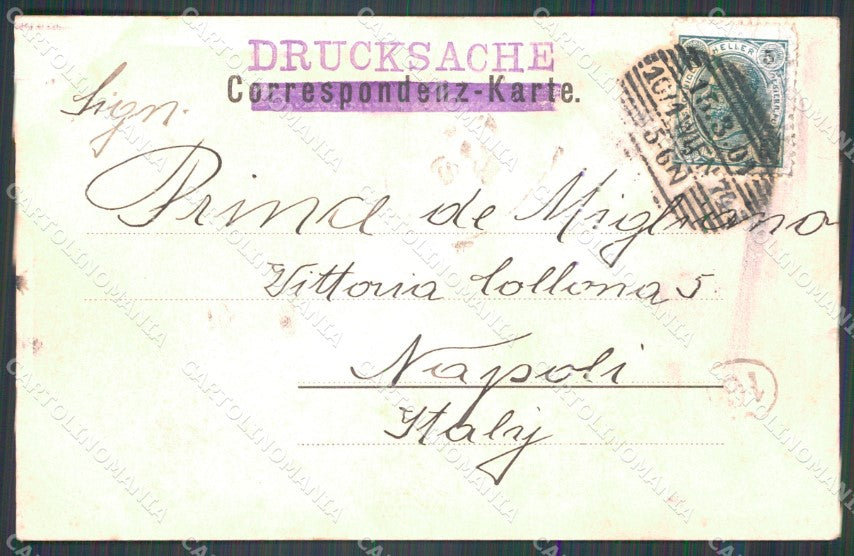 DRUCKSACHE
Correspondenz-Karte.
HELLER
5
10/1 WIEN
15.3.01
5-6N
Sign.
Princ de Migliano
Vittoria Collona 5.
Napoli
Italy
CARTOLINOMANIA